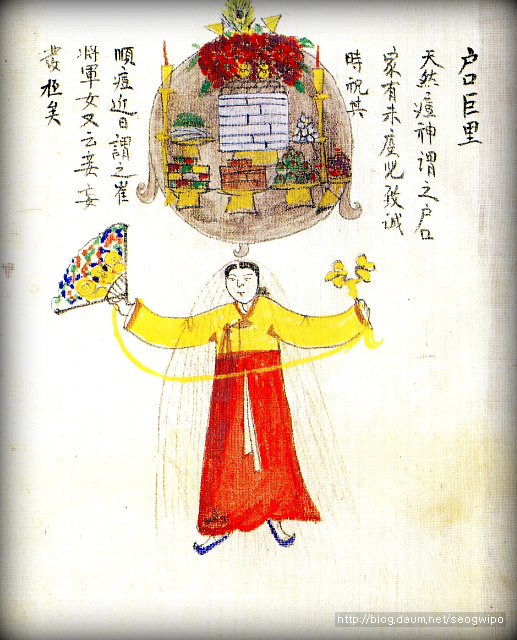 户口巨里
天然痘神謂之户口
家有未度兒致诚
時祝其
順痘近日謂之崔
将軍女又云妾妄
發極矣
http://blog.daum.net/seogwipo